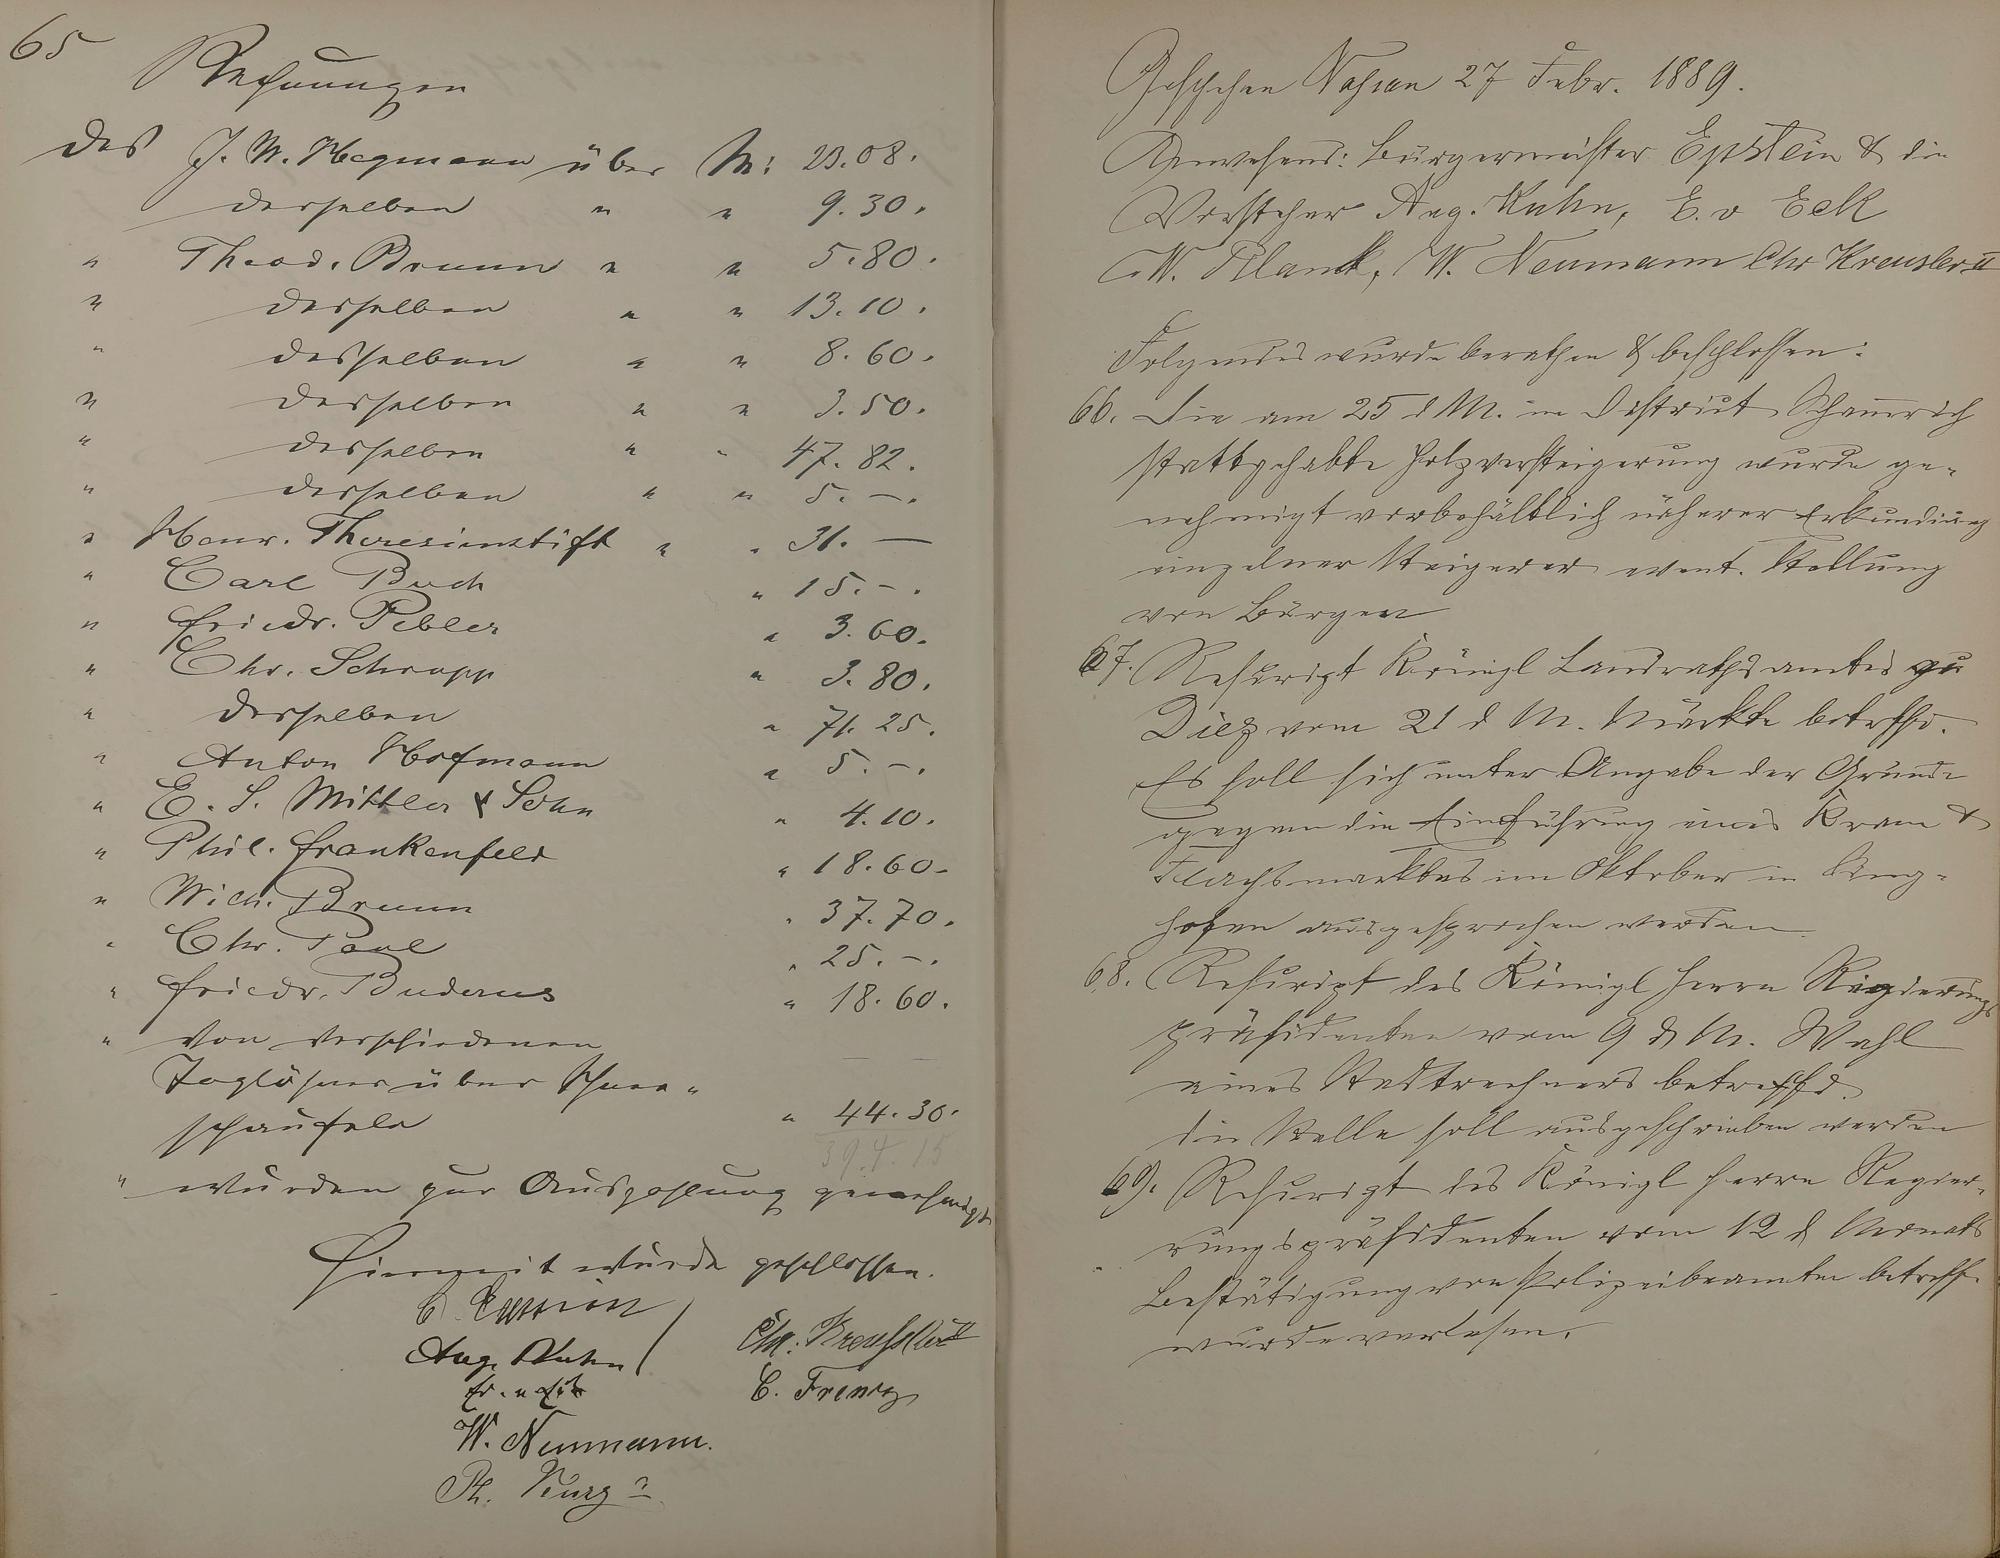 65
Rechnungen
des J. W. Hegmann über M: 23.08.
desselben " " 9.30.
" Theod. Bruun " " 5.80.
" desselben " " 13.10.
" desselben " " 8.60.
" desselben " " 3.50.
" desselben " " 47.82.
" desselben " " 5.-.
" Henr. Theresienstift " " 31.—
" Carl Buch " 15.-.
" Friedr. Pebler " 3.60.
" Chr. Schrupp " 3.80.
" desselben " 71.25.
" Anton Hofmann " 5.-.
" E. S. Mittler & Sohn " 4.10.
" Phil. Frankenfeld " 18.60.
" Wich. Bruun " 37.70.
" Chr. Paul " 25.-.
" Friedr. Buderus " 18.60.
" von verschiedenen
Taglöhner über Schnee-
schaufeln " 44.30.
394.15
" wurden zur Auszahlung genehmigt
Hiermit wurde geschlossen.
Epstein
Aug. Kuhn Chr. Kreusler II
C. Frenz
W. Neumann.
Ph.
Geschehen Nassau 27 Febr. 1889.
Anwesend: Bürgermeister Epstein & die
Vorsteher Aug. Kuhn, E. v Eck
W. Plank, W. Neumann Chr Kreusler II
Folgendes wurde berathen & beschlossen:
66. Die am 25 d M. im District
stattgehabte Holzversteigerung wurde ge-
nehmigt vorbehältlich näherer Erkundigung
einzelner Steigerer event. Stellung
von Bürgen
67. Rescript Königl Landrathsamtes zu
Diez vom 21 d M. Märkte betreffd.
Es soll sich unter Angabe der Gründe
gegen die Einführung eines Kram &
Flachsmarktes im Oktober in Sing-
hofen ausgesprochen werden.
68. Rescript des Königl Herrn Regierungs
präsidenten vom 9 d M. Wahl
eines Stadtrechners betreffd.
die Stelle soll ausgeschrieben werden
69. Rescript des Königl Herrn Regier-
rungspräsidenten vom 12 d Monats
Bestätigung von Polizeibeamten betreff.
wurde verlesen.